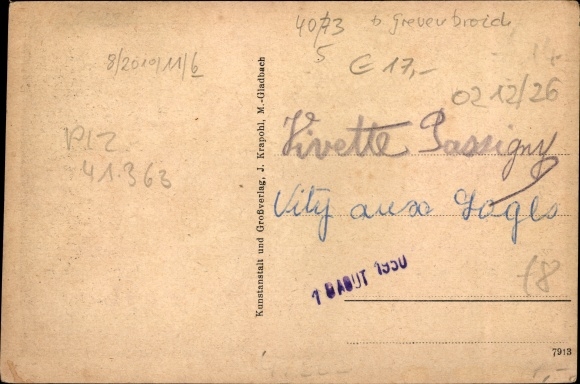 4073 b Grevenbroich
5
8/2010/11/6
€ 17,-
02 12/26
PLZ
41363
Kunstanstalt und Großverlag, J. Krapohl, M.-Gladbach
Vivette Passigny
Vitry aux Loges
18 AOUT 1950
18
7913